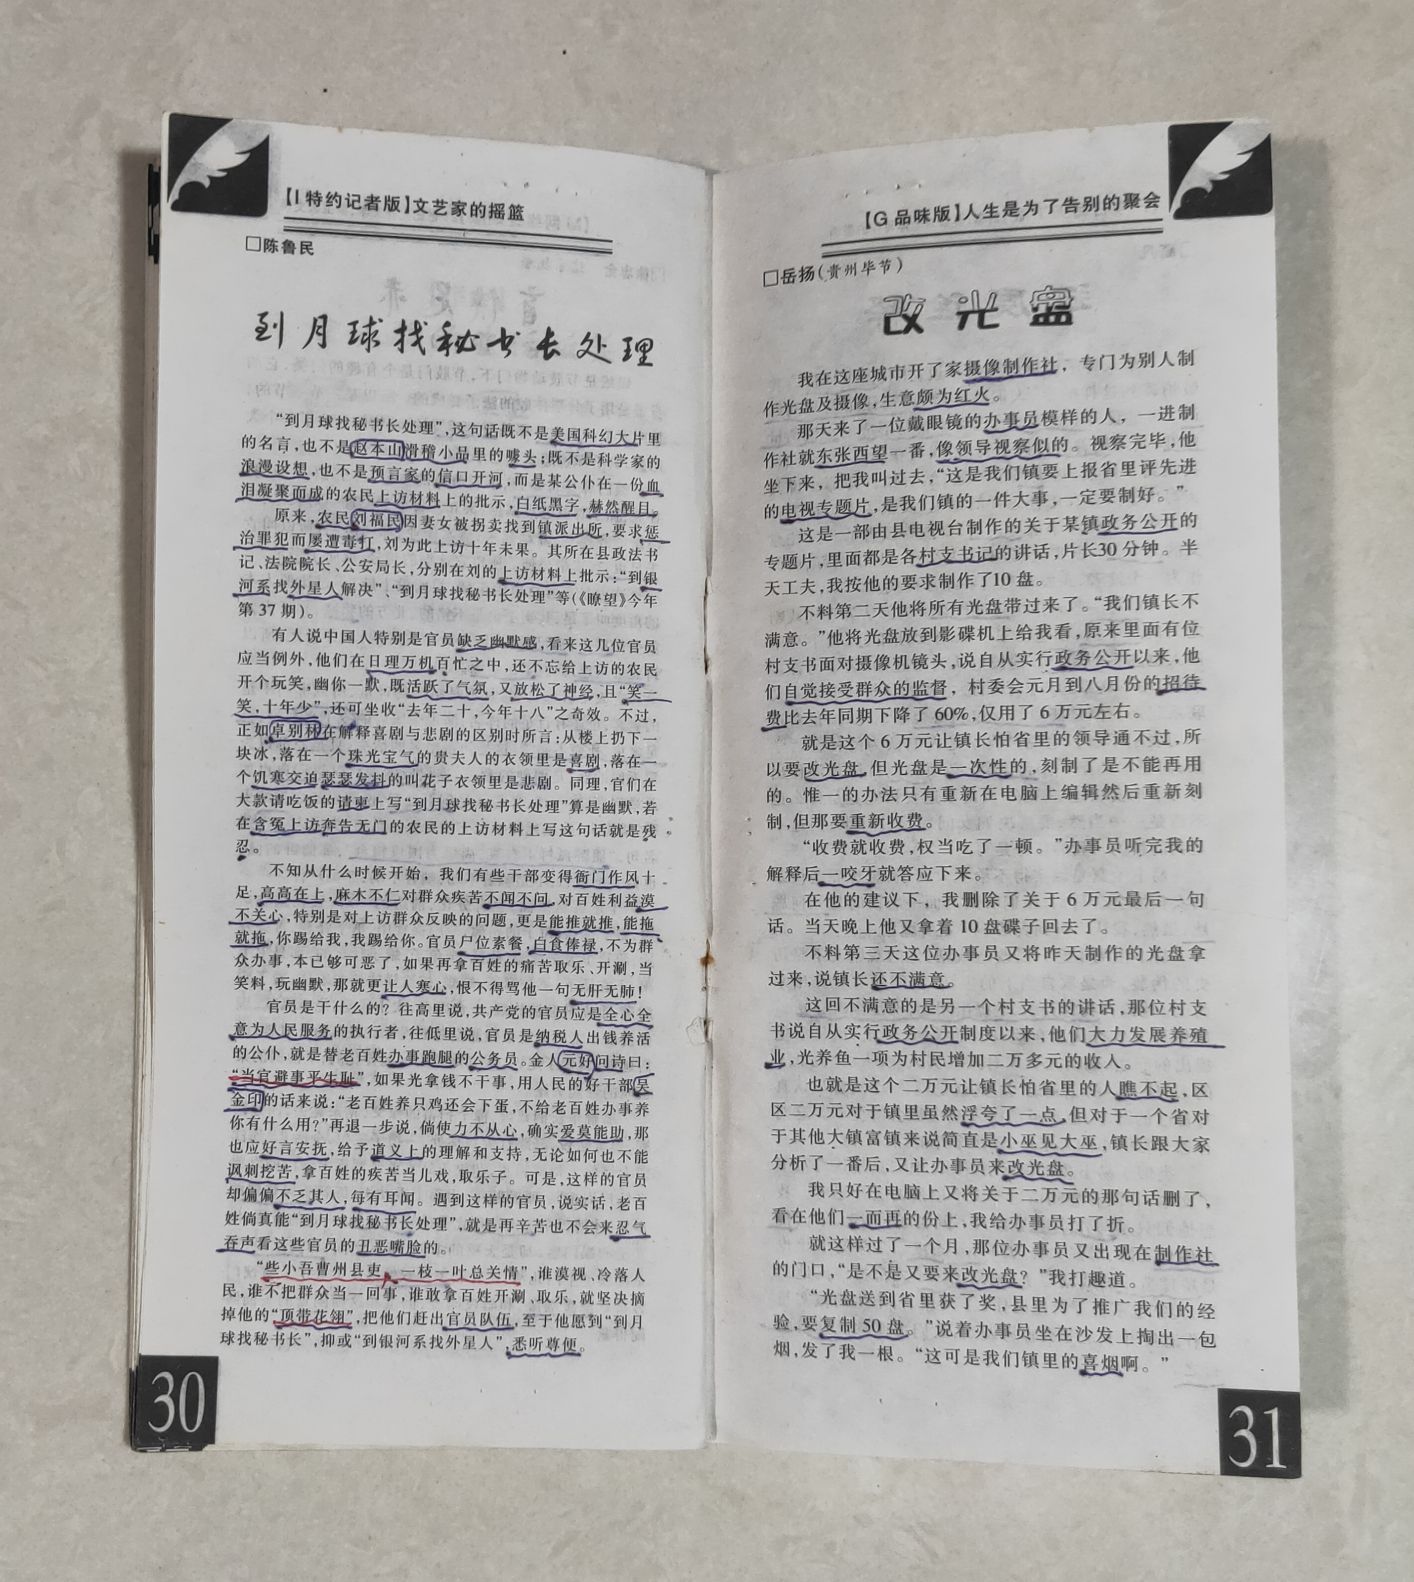 【I 特约记者版】文艺家的摇篮
□陈鲁民
到月球找秘书长处理
“到月球找秘书长处理”,这句话既不是美国科幻大片里
的名言,也不是赵本山滑稽小品里的噱头;既不是科学家的
浪漫设想,也不是预言家的信口开河,而是某公仆在一份血
泪凝聚而成的农民上访材料上的批示,白纸黑字,赫然醒目。
原来,农民刘福民因妻女被拐卖找到镇派出所,要求惩
治罪犯而屡遭毒打,刘为此上访十年未果。其所在县政法书
记、法院院长、公安局长,分别在刘的上访材料上批示:“到银
河系找外星人解决”、“到月球找秘书长处理”等(《瞭望》今年
第 37 期)。
有人说中国人特别是官员缺乏幽默感,看来这几位官员
应当例外,他们在日理万机百忙之中,还不忘给上访的农民
开个玩笑,幽你一默,既活跃了气氛,又放松了神经,且“笑一
笑,十年少”,还可坐收“去年二十,今年十八”之奇效。不过,
正如卓别林在解释喜剧与悲剧的区别时所言:从楼上扔下一
块冰,落在一个珠光宝气的贵夫人的衣领里是喜剧,落在一
个饥寒交迫瑟瑟发抖的叫花子衣领里是悲剧。同理,官们在
大款请吃饭的请柬上写“到月球找秘书长处理”算是幽默,若
在含冤上访奔告无门的农民的上访材料上写这句话就是残
忍。
不知从什么时候开始,我们有些干部变得衙门作风十
足,高高在上,麻木不仁对群众疾苦不闻不问,对百姓利益漠
不关心,特别是对上访群众反映的问题,更是能推就推,能拖
就拖,你踢给我,我踢给你。官员尸位素餐,白食俸禄,不为群
众办事,本已够可恶了,如果再拿百姓的痛苦取乐、开涮,当
笑料,玩幽默,那就更让人寒心,恨不得骂他一句无肝无肺!
官员是干什么的?往高里说,共产党的官员应是全心全
意为人民服务的执行者,往低里说,官员是纳税人出钱养活
的公仆,就是替老百姓办事跑腿的公务员。金人元好问诗曰:
“当官避事平生耻”,如果光拿钱不干事,用人民的好干部吴
金印的话来说:“老百姓养只鸡还会下蛋,不给老百姓办事养
你有什么用?”再退一步说,倘使力不从心,确实爱莫能助,那
也应好言安抚,给予道义上的理解和支持,无论如何也不能
讽刺挖苦,拿百姓的疾苦当儿戏,取乐子。可是,这样的官员
却偏偏不乏其人,每有耳闻。遇到这样的官员,说实话,老百
姓倘真能“到月球找秘书长处理”,就是再辛苦也不会来忍气
吞声看这些官员的丑恶嘴脸的。
“些小吾曹州县吏,一枝一叶总关情”,谁漠视、冷落人
民,谁不把群众当一回事,谁敢拿百姓开涮、取乐,就坚决摘
掉他的“顶带花翎”,把他们赶出官员队伍,至于他愿到“到月
球找秘书长”,抑或“到银河系找外星人”,悉听尊便。
30
【G 品味版】人生是为了告别的聚会
□岳扬(贵州毕节)
改光盘
我在这座城市开了家摄像制作社，专门为别人制
作光盘及摄像,生意颇为红火。
那天来了一位戴眼镜的办事员模样的人，一进制
作社就东张西望一番,像领导视察似的。视察完毕,他
坐下来，把我叫过去,“这是我们镇要上报省里评先进
的电视专题片,是我们镇的一件大事,一定要制好。”
这是一部由县电视台制作的关于某镇政务公开的
专题片,里面都是各村支书记的讲话,片长30 分钟。半
天工夫,我按他的要求制作了10 盘。
不料第二天他将所有光盘带过来了。“我们镇长不
满意。”他将光盘放到影碟机上给我看,原来里面有位
村支书面对摄像机镜头,说自从实行政务公开以来,他
们自觉接受群众的监督，村委会元月到八月份的招待
费比去年同期下降了 60%,仅用了 6 万元左右。
就是这个 6 万元让镇长怕省里的领导通不过,所
以要改光盘,但光盘是一次性的,刻制了是不能再用
的。惟一的办法只有重新在电脑上编辑然后重新刻
制,但那要重新收费。
“收费就收费,权当吃了一顿。”办事员听完我的
解释后一咬牙就答应下来。
在他的建议下，我删除了关于 6 万元最后一句
话。当天晚上他又拿着 10 盘碟子回去了。
不料第三天这位办事员又将昨天制作的光盘拿
过来,说镇长还不满意。
这回不满意的是另一个村支书的讲话,那位村支
书说自从实行政务公开制度以来,他们大力发展养殖
业,光养鱼一项为村民增加二万多元的收人。
也就是这个二万元让镇长怕省里的人瞧不起,区
区二万元对于镇里虽然浮夸了一点,但对于一个省对
于其他大镇富镇来说简直是小巫见大巫,镇长跟大家
分析了一番后,又让办事员来改光盘。
我只好在电脑上又将关于二万元的那句话删了,
看在他们一而再的份上,我给办事员打了折。
就这样过了一个月,那位办事员又出现在制作社
的门口,“是不是又要来改光盘？”我打趣道。
“光盘送到省里获了奖,县里为了推广我们的经
验,要复制 50 盘。”说着办事员坐在沙发上掏出一包
烟,发了我一根。“这可是我们镇里的喜烟啊。”
31